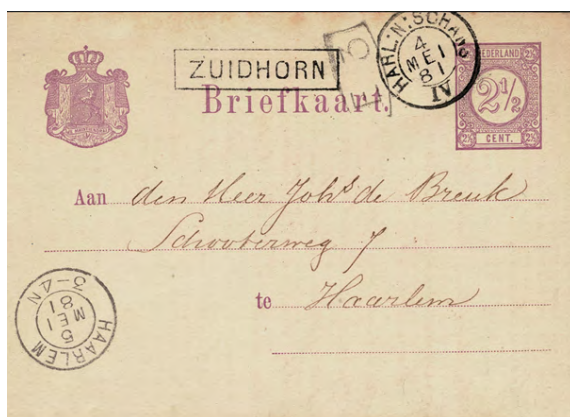 ZUIDHORN
HARL:N:SCHANS
4
MEI
81
IV
NEDERLAND
2½
CENT.
Briefkaart.
Aan den Heer Johs de Breuk
Schooterweg 7
te Haarlem
HAARLEM
5
MEI
81
3-4N